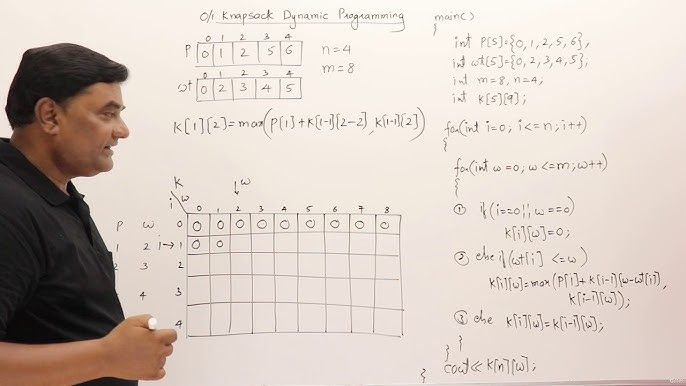 0/1 Knapsack Dynamic Programming
0 1 2 3 4
P 0 1 2 5 6 n=4
m=8
0 1 2 3 4
wt 0 2 3 4 5
K[1][2]=max(P[1]+K[1-1][2-2], K[1-1][2])
K ↓w
i w 0 1 2 3 4 5 6 7 8
P w 0 0 0 0 0 0 0 0 0 0
1 2 i→1 0 0
2 3 2
4 3
4
main()
{
int P[5]={0,1,2,5,6};
int wt[5]={0,2,3,4,5};
int m=8, n=4;
int K[5][9];
for(int i=0; i<=n; i++)
{
for(int w=0; w<=m; w++)
{
① if(i==0 || w==0)
K[i][w]=0;
② else if(wt[i] <=w)
K[i][w]=max(P[i]+K[i-1][w-wt[i]],
K[i-1][w]);
③ else K[i][w]=K[i-1][w];
}
}
cout<< K[n][w];
}